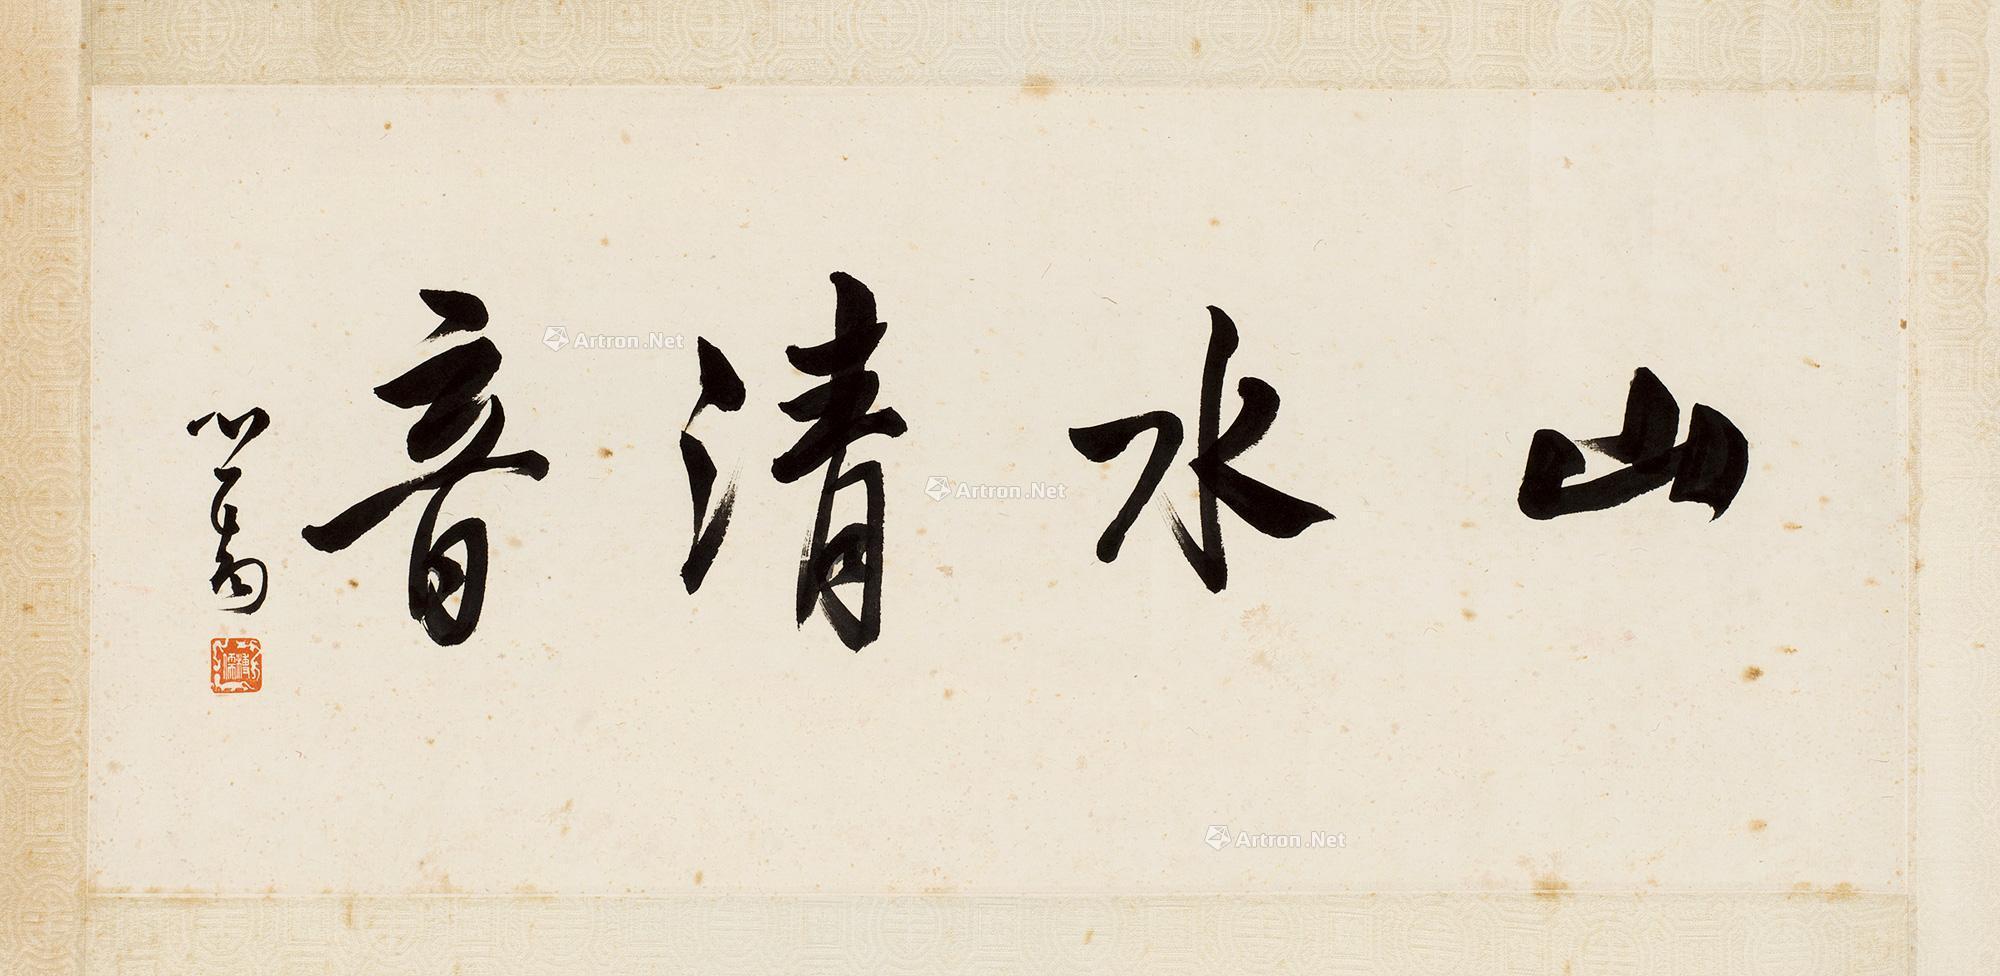 山水清音
心畬
Artron.Net
Artron.Net
Artron.Net